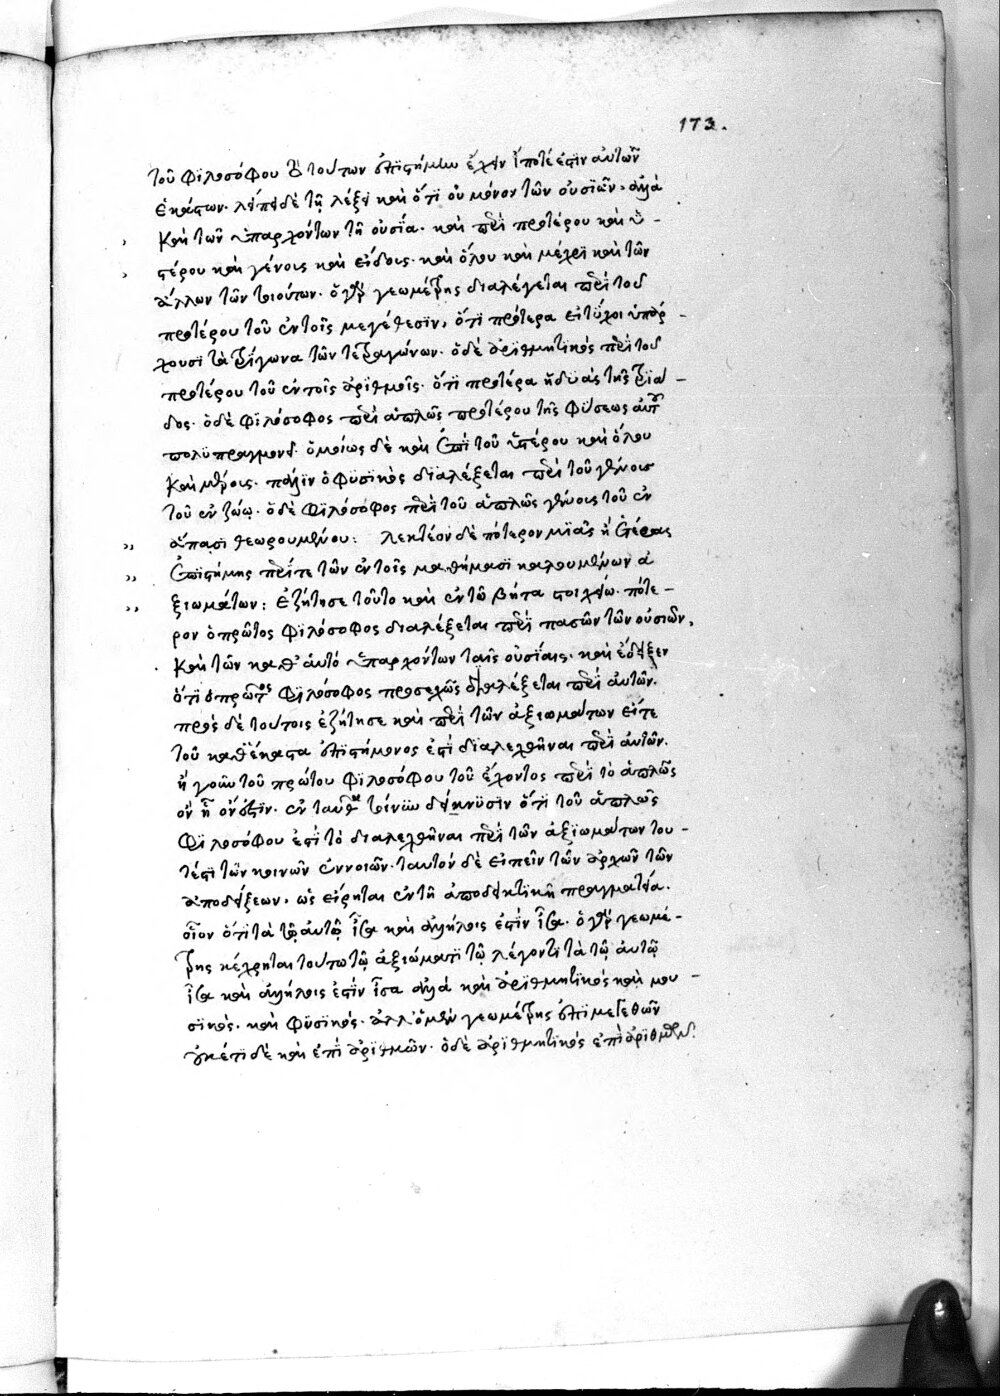 173.
τοῦ φιλοσόφου τὸ τούτων ἐπιστήμην ἔχειν τί ποτέ ἐστιν αὐτῶν
ἕκαστον. λείπει δὲ τῇ λέξει καὶ ὅτι οὐ μόνον τῶν οὐσιῶν. ἀλλὰ
καὶ τῶν ὑπαρχόντων τῇ οὐσίᾳ. καὶ περὶ προτέρου καὶ ὑ-
στέρου καὶ γένους καὶ εἴδους. καὶ ὅλου καὶ μέρους καὶ τῶν
ἄλλων τῶν τοιούτων. ὁ γὰρ γεωμέτρης διαλέγεται περὶ τοῦ
προτέρου τοῦ ἐν τοῖς μεγέθεσιν, ὅτι πρότερα εἰ τύχοι ὑπάρ-
χουσι τὰ τρίγωνα τῶν τετραγώνων. ὁ δὲ ἀριθμητικὸς περὶ τοῦ
προτέρου τοῦ ἐν τοῖς ἀριθμοῖς. ὅτι προτέρα ἡ δυὰς τῆς τριά-
δος. ὁ δὲ φιλόσοφος περὶ ἁπλῶς προτέρου τῆς φύσεως αὐτοῦ
πολυπραγμονεῖ. ὁμοίως δὲ καὶ ἐπὶ τοῦ ὑστέρου καὶ ὅλου
καὶ μέρους. πάλιν ὁ φυσικὸς διαλέξεται περὶ τοῦ γένους
τοῦ ἐν ζώῳ. ὁ δὲ φιλόσοφος περὶ τοῦ ἁπλῶς γένους τοῦ ἐν
ἅπασι θεωρουμένου: λεκτέον δὲ πότερον μιᾶς ἢ ἑτέρας
ἐπιστήμης περί τε τῶν ἐν τοῖς μαθήμασι καλουμένων ἀ
ξιωμάτων: ἐζήτησε τοῦτο καὶ ἐν τῷ βῆτα στοιχείῳ. πότε-
ρον ὁ πρῶτος φιλόσοφος διαλέξεται περὶ πασῶν τῶν οὐσιῶν,
καὶ τῶν καθ' αὑτὸ ὑπαρχόντων ταῖς οὐσίαις. καὶ ἔδειξεν
ὅτι ὁ πρῶτος φιλόσοφος προσεχῶς διαλέξεται περὶ αὐτῶν.
πρὸς δὲ τούτοις ἐζήτησε καὶ περὶ τῶν ἀξιωμάτων εἴτε
τοῦ καθ' ἕκαστα ἐπιστήμονος ἐστὶ διαλεχθῆναι περὶ αὐτῶν.
ἢ γοῦν τοῦ πρώτου φιλοσόφου τοῦ ἔχοντος περὶ τὸ ἁπλῶς
ὂν ᾗ ὄν ἐστιν. ἐνταῦθα τοίνυν δείκνυσιν ὅτι τοῦ ἁπλῶς
φιλοσόφου ἐστὶ τὸ διαλεχθῆναι περὶ τῶν ἀξιωμάτων του-
τέστι τῶν κοινῶν ἐννοιῶν. ταυτὸν δὲ εἰπεῖν τῶν ἀρχῶν τῶν
ἀποδείξεων. ὡς εἴρηται ἐν τῇ ἀποδεικτικῇ πραγματείᾳ.
οἷον ὅτι τὰ τῷ αὐτῷ ἴσα καὶ ἀλλήλοις ἐστὶν ἴσα. ὁ γὰρ γεωμέ-
τρης κέχρηται τούτῳ τῷ ἀξιώματι τῷ λέγοντι τὰ τῷ αὐτῷ
ἴσα καὶ ἀλλήλοις ἐστὶν ἴσα ἀλλὰ καὶ ἀριθμητικὸς καὶ μου-
σικός. καὶ φυσικός. ἀλλ' ὁ μὲν γεωμέτρης ἐπὶ μεγεθῶν
οὐκέτι δὲ καὶ ἐπὶ ἀριθμῶν. ὁ δὲ ἀριθμητικὸς ἐπὶ ἀριθμῶν.